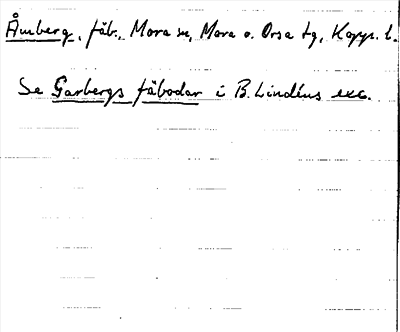 Åmberg, fäb., Mora sn, Mora o. Orsa tg, Kopp. l.
Se Garbergs fäbodar i B. Lindéns exc.